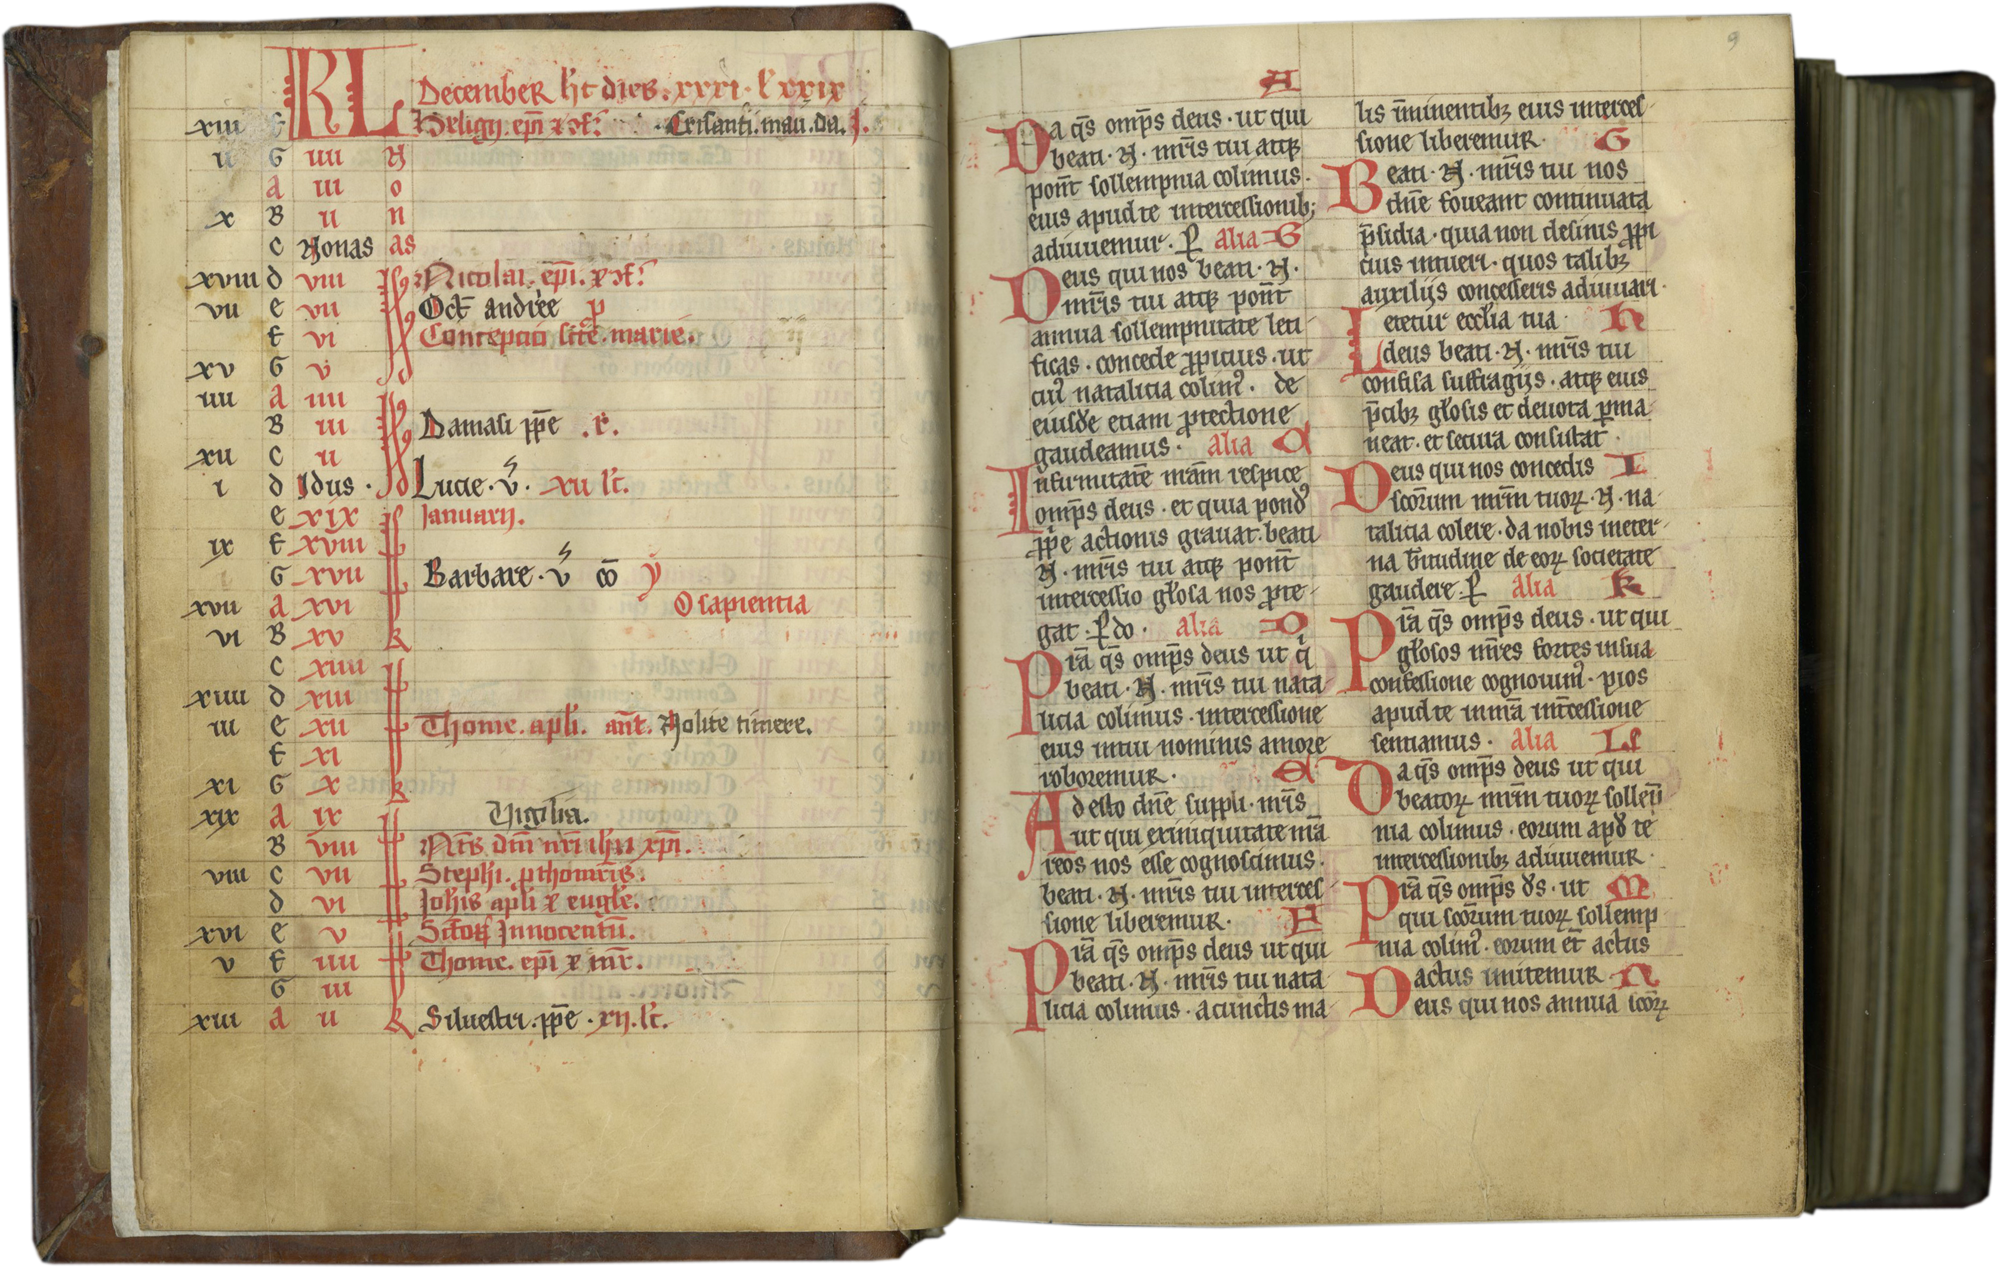 KL December ht dies. xxxi. l xxix
xiii f Heligii. epi. Crisanti. mau. da.
ii G iiii N
a iii o
x B ii n
c Nonas as
xviii d viii Nicolai. epi.
vii e vii Oct andree p
f vi Conceptio scte. marie.
xv G v
iiii a iiii
B iii Damasi ppe
xii c ii
i d Idus. Lucie. v. xii lc.
e xix Januarij.
ix f xviii
G xvii Barbare. v co
xvii a xvi O sapientia
vi B xv
c xiiii
xiiii d xiii
iii e xii Thome. apli. ant. Nolite timere.
f xi
xi G x
xix a ix Vigilia.
B viii Nts. dni nri ihu xpi.
viii c vii Stephi. pthomris.
d vi Johis apli z eugle.
xvi e v Sctoꝝ Innocentu.
v f iiii Thome. epi z mr.
G iii
xiii a ii Siluestri. ppe. xii. lc.
9
A
Da qs omps deus. ut qui
beati. N. mris tui atqꝫ
pont sollempnia colimus.
eius apud te intercessionibꝫ
adiuuemur. P alia G
Deus qui nos beati. N.
mris tui atqꝫ pont
annua sollempnitate leti
ficas. concede propicius. ut
cui natalicia colim. de
eiusde etiam protectione
gaudeamus. alia
Infirmitate nram respice
omps deus. et quia pond
ppe actionis grauat. beati
N. mris tui atqꝫ pont
intercessio glosa nos prote
gat. P do. alia D
Presta qs omps deus ut q
beati. N. mris tui nata
licia colimus. intercessione
eius in tui nominis amore
roboremur.
Adesto dne suppli. nris
ut qui ex iniquitate nra
reos nos esse cognoscimus.
beati. N. mris tui interces
sione liberemur.
Prista qs omps deus ut qui
beati. N. mris tui nata
licia colimus. a cunctis ma
lis iminentibꝫ eius interces
sione liberemur. G
Beati. N. mris tui nos
dne foueant continuata
psidia. quia non desinis ppi
cius intueri. quos talibꝫ
auxilijs concesseris adiuuari.
Letetur ecclia tua. h
deus beati. N. mris tui
confisa suffragijs. atqꝫ eius
pcibꝫ glosis et deuota pma
neat. et secura consistat.
Deus qui nos concedis I
scorum mrm tuoꝝ. N. na
talicia colere. da nobis in eter
na btitudine de eoꝝ societate
gaudere. P alia k
Pria qs omps deus. ut qui
glosos mres fortes in sua
confessione cognouim. pios
apud te in nra intcessione
sentiamus. alia L
Da qs omps deus ut qui
beatoꝝ mrm tuoꝝ solle
nia colimus. eorum apd te
intercessionibꝫ adiuuemur.
Pria qs omps ds. ut M
qui scorum tuoꝝ sollemp
nia colim. eorum et actus
actus imitemur. N
Deus qui nos annua scoꝝ